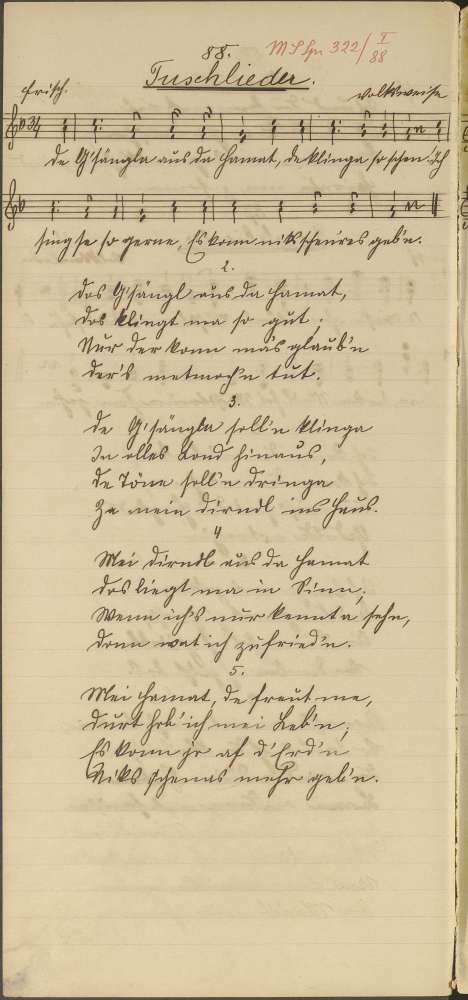 88.
MS Spr 322/ I 88
Tuschlieder.
frisch. Volksweise
3/4
de G'sängla aus da Hamat, de klinga so schen! Ich
sing se so gerne, Es konn niks schen'res geb'n.
2.
Dos G'sängl aus da Hamat,
Dos klingt ma so gut,
Nur der konn ma's glaub'n
Der's metmoch'n tut.
3.
De G'sängla soll'n klinga
In olles Lond hinaus,
De Töne soll'n dringa
Za mein Dirndl ins Haus.
4
Mei Dirndl aus da Hamat
Dos liegt ma in Sinn,
Wenn ich's nur kennt a sehn,
Donn wat ich zufried'n.
5.
Mei Hamat, de freut me,
Durt hob' ich mei Leb'n,
Es konn jo af d'Erd'n
Niks schenas mehr geb'n.